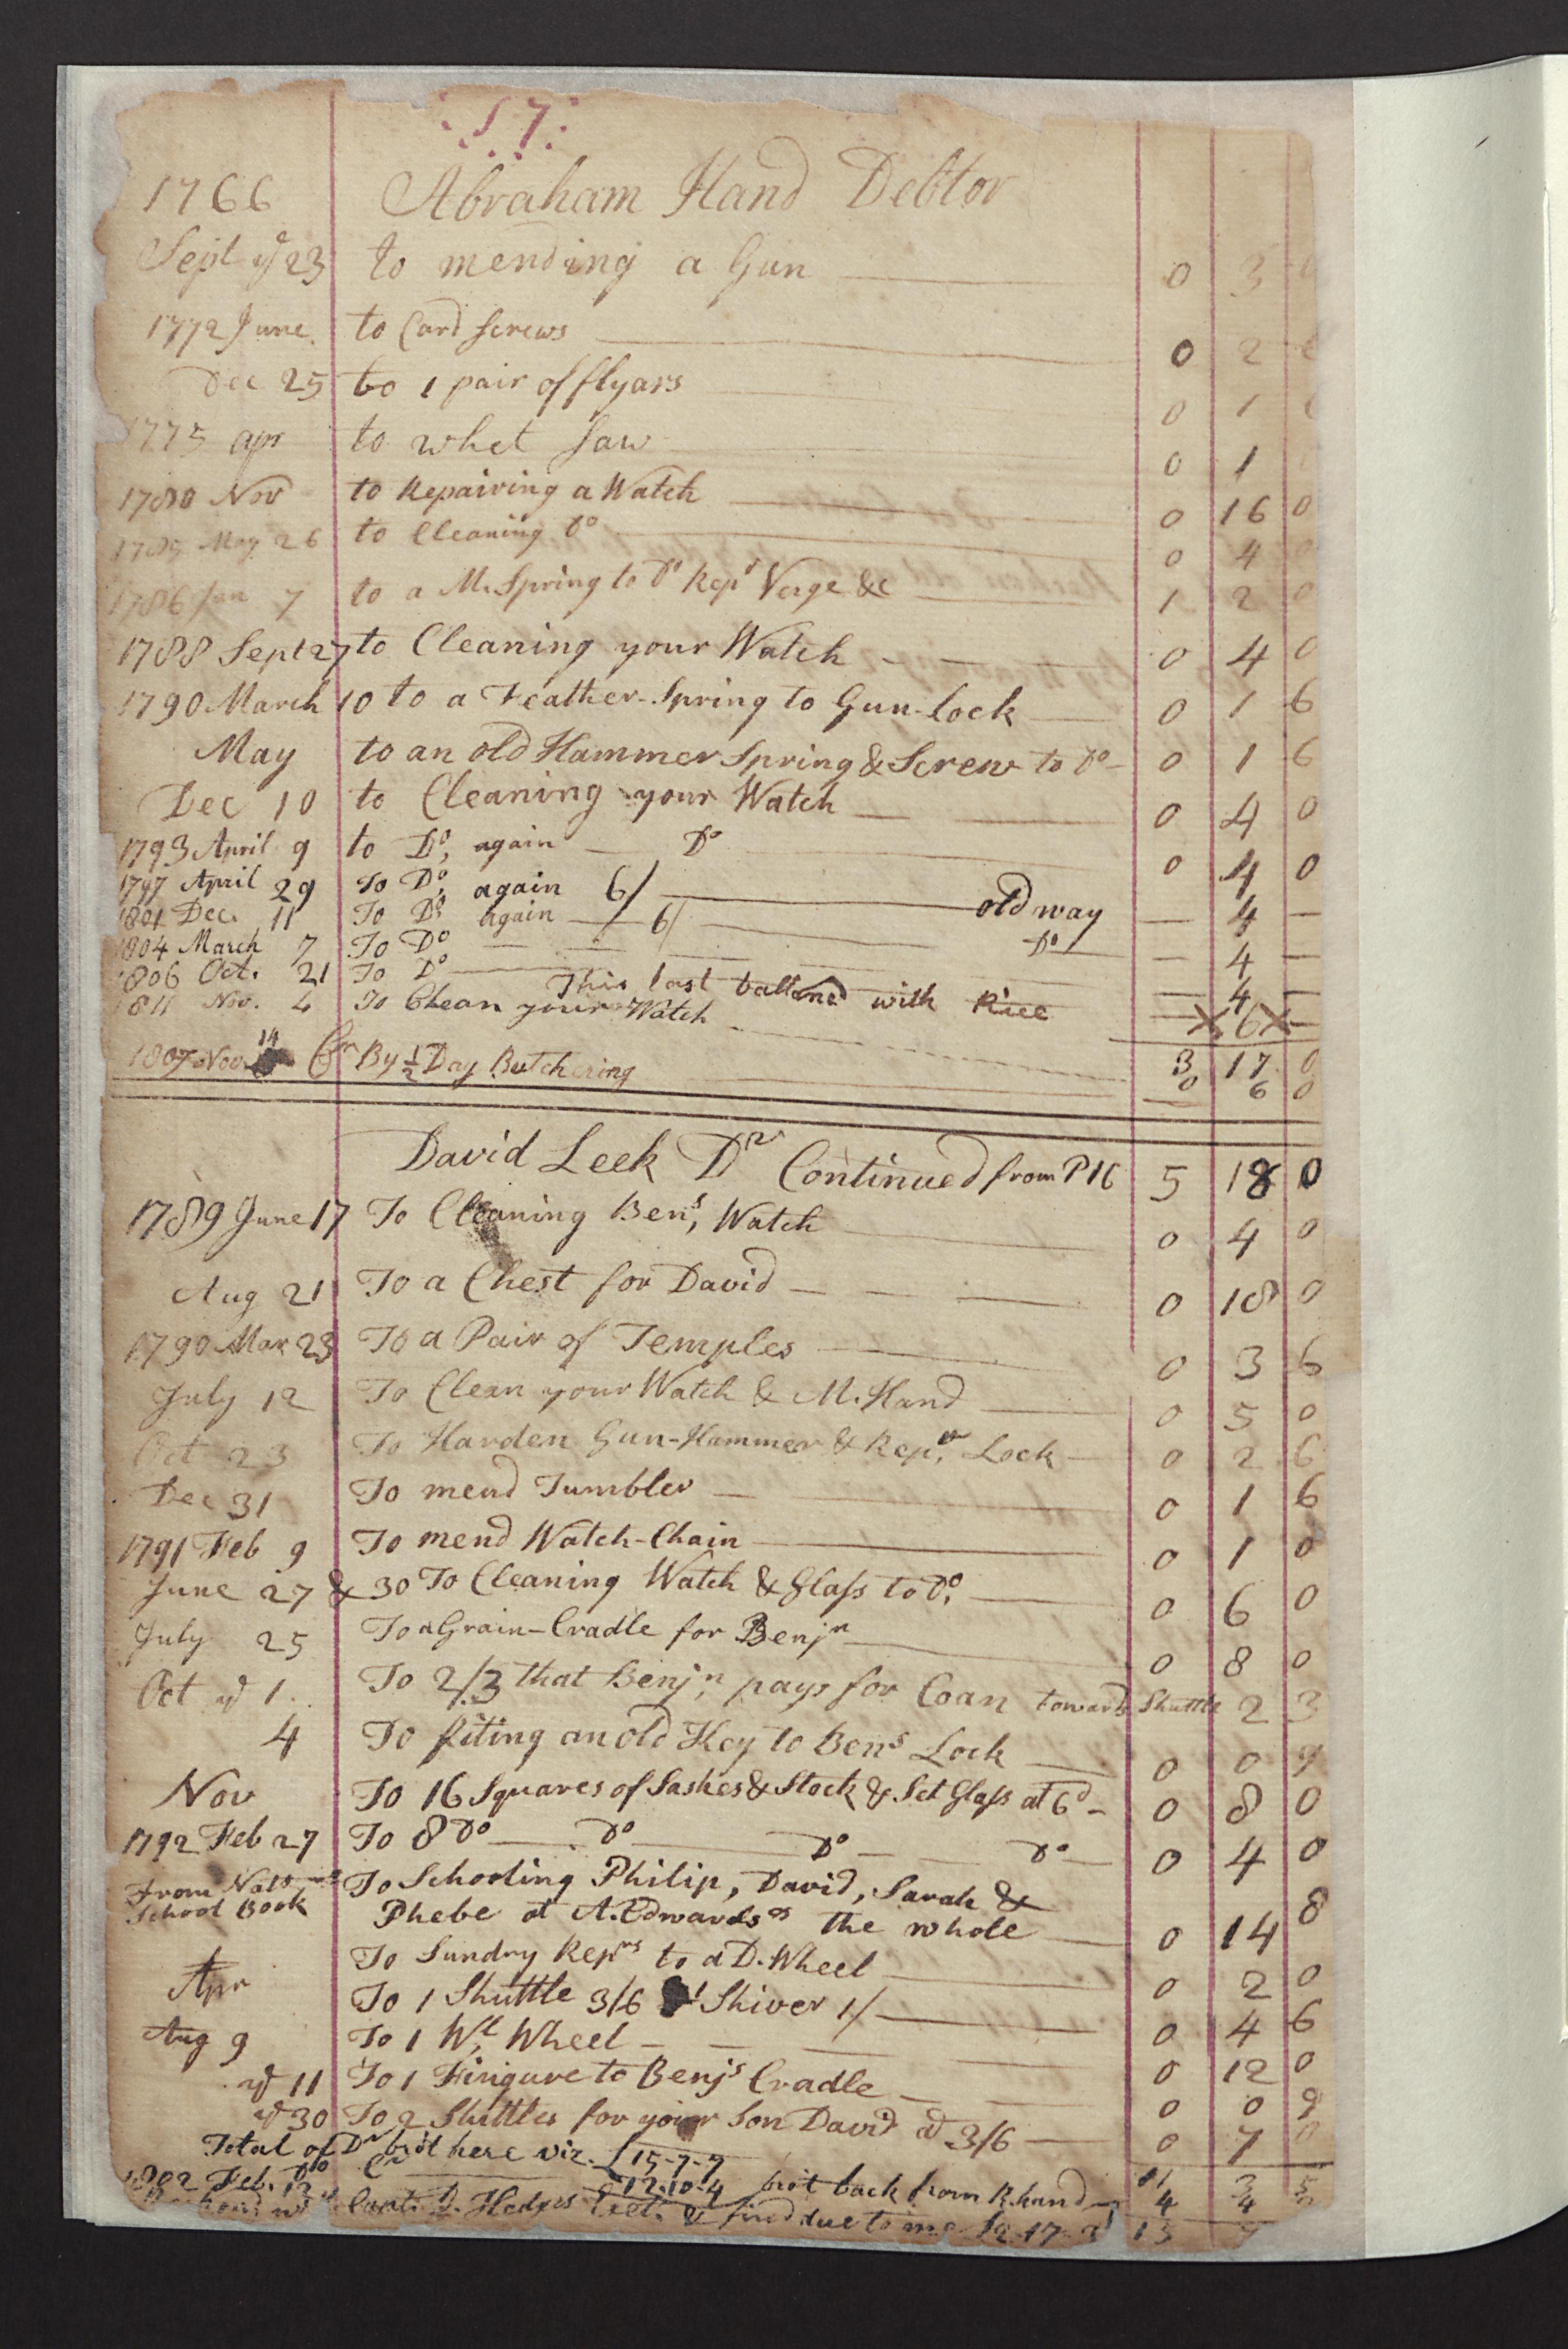 :17:
1766 Abraham Hand Debtor
Sept ye 23 to mending a Gun 0 3
1772 June to Card screws 0 2
Dec 25 to 1 pair of flyars 0 1
1775 apr to whet saw 0 1
1780 Nov to Repairing a Watch 0 16 0
1785 May 26 to Cleaning Do 0 4 0
1786 Jan 7 to a M. Spring to Do Repd Verge &c 1 2 0
1788 Sept 27 to Cleaning your Watch 0 4 0
1790 March 10 to a Feather-Spring to Gun-lock 0 1 6
May to an old Hammer Spring & Screw to Do 0 1 6
Dec 10 to Cleaning your Watch 0 4 0
1793 April 9 to Do, again Do 0 4 0
1797 April 29 To Do, again 6/ old way — 4 —
1801 Dec. 11 To Do again 6/ Do — 4 —
1804 March 7 To Do — 4 —
1806 Oct. 21 To Do This last with Rice
1811 Nov. 4 To Clean your Watch 6
3 17 0
1807 Nov 14 Cr By ½ Day Butchering 0 6 0
David Leek Dr Continued from P 16 5 18 0
1789 June 17 To Cleaning Bens, Watch 0 4 0
Aug 21 To a Chest for David 0 18 0
1790 Mar 23 To a Pair of Temples 0 3 6
July 12 To Clean your Watch & M. Hand 0 5 0
Oct 23 To Harden Gun-Hammer & Repr. Lock 0 2 6
Dec 31 To mend Tumbler 0 1 6
1791 Feb 9 To mend Watch-Chain 0 1 0
June 27 & 30 To Cleaning Watch & Glass to Do. 0 6 0
July 25 To a Grain-Cradle for Benjn 0 8 0
Oct ye 1 To 2/3 that Benjn, pays for Coan towards Shuttle 2 3
4 To fiting an old Key to Bens Lock 0 0 9
Nov To 16 Squares of Sashes & Stock & Set Glass at 6d 0 8 0
1792 Feb 27 To 8 Do Do Do Do 0 4 0
From School Book To Schooling Philip, David, Sarah &
Phebe at A. Edwards's the whole 0 14 8
Apr To Sundry Reprs to a D. Wheel 0 2 0
To 1 Shuttle 3/6 Shiver 1/ 0 4 6
Aug 9 To 1 Wl Wheel 0 12 0
ye 11 To 1 Fingure to Benjs Cradle 0 0 9
ye 30 To 2 Shuttles for your Son David @ 3/6 0 7 0
Total of Dr brôt here viz. £15-7-7
Do Cr 12-10-4 brôt back from R. hand 4 4
1802 Feb. 12 D. Hedges & find due to me £2-17-3